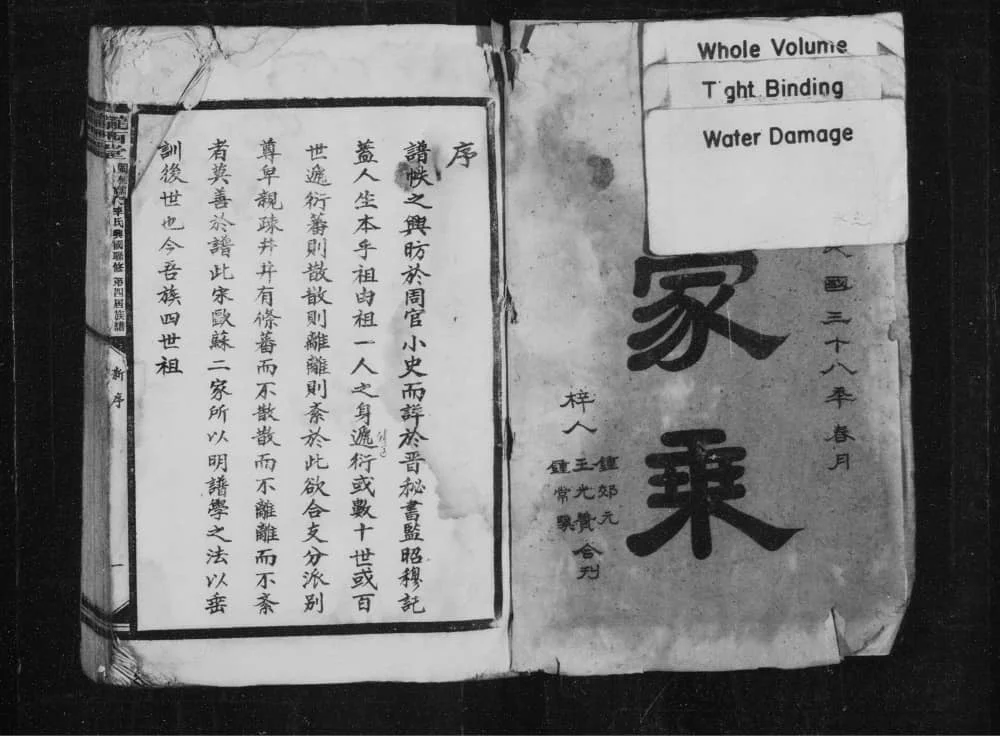 Whole Volume
Tight Binding
Water Damage
民國三十八年春月
家乘
梓人
鍾郊元
王光贊合刋
鍾常興
序
譜帙之興昉於周官小史而詳於晋秘書監昭穆記
蓋人生本乎祖由祖一人之身遞衍或數十世或百
世遞衍蕃則散散則離離則紊於此欲合支分派別
尊卑親疎井井有條蕃而不散散而不離離而不紊
者莫善於譜此宋歐蘇二家所以明譜學之法以垂
訓後世也今吾族四世祖
隴西堂
李氏興國聯修 第四届族譜
新序
一